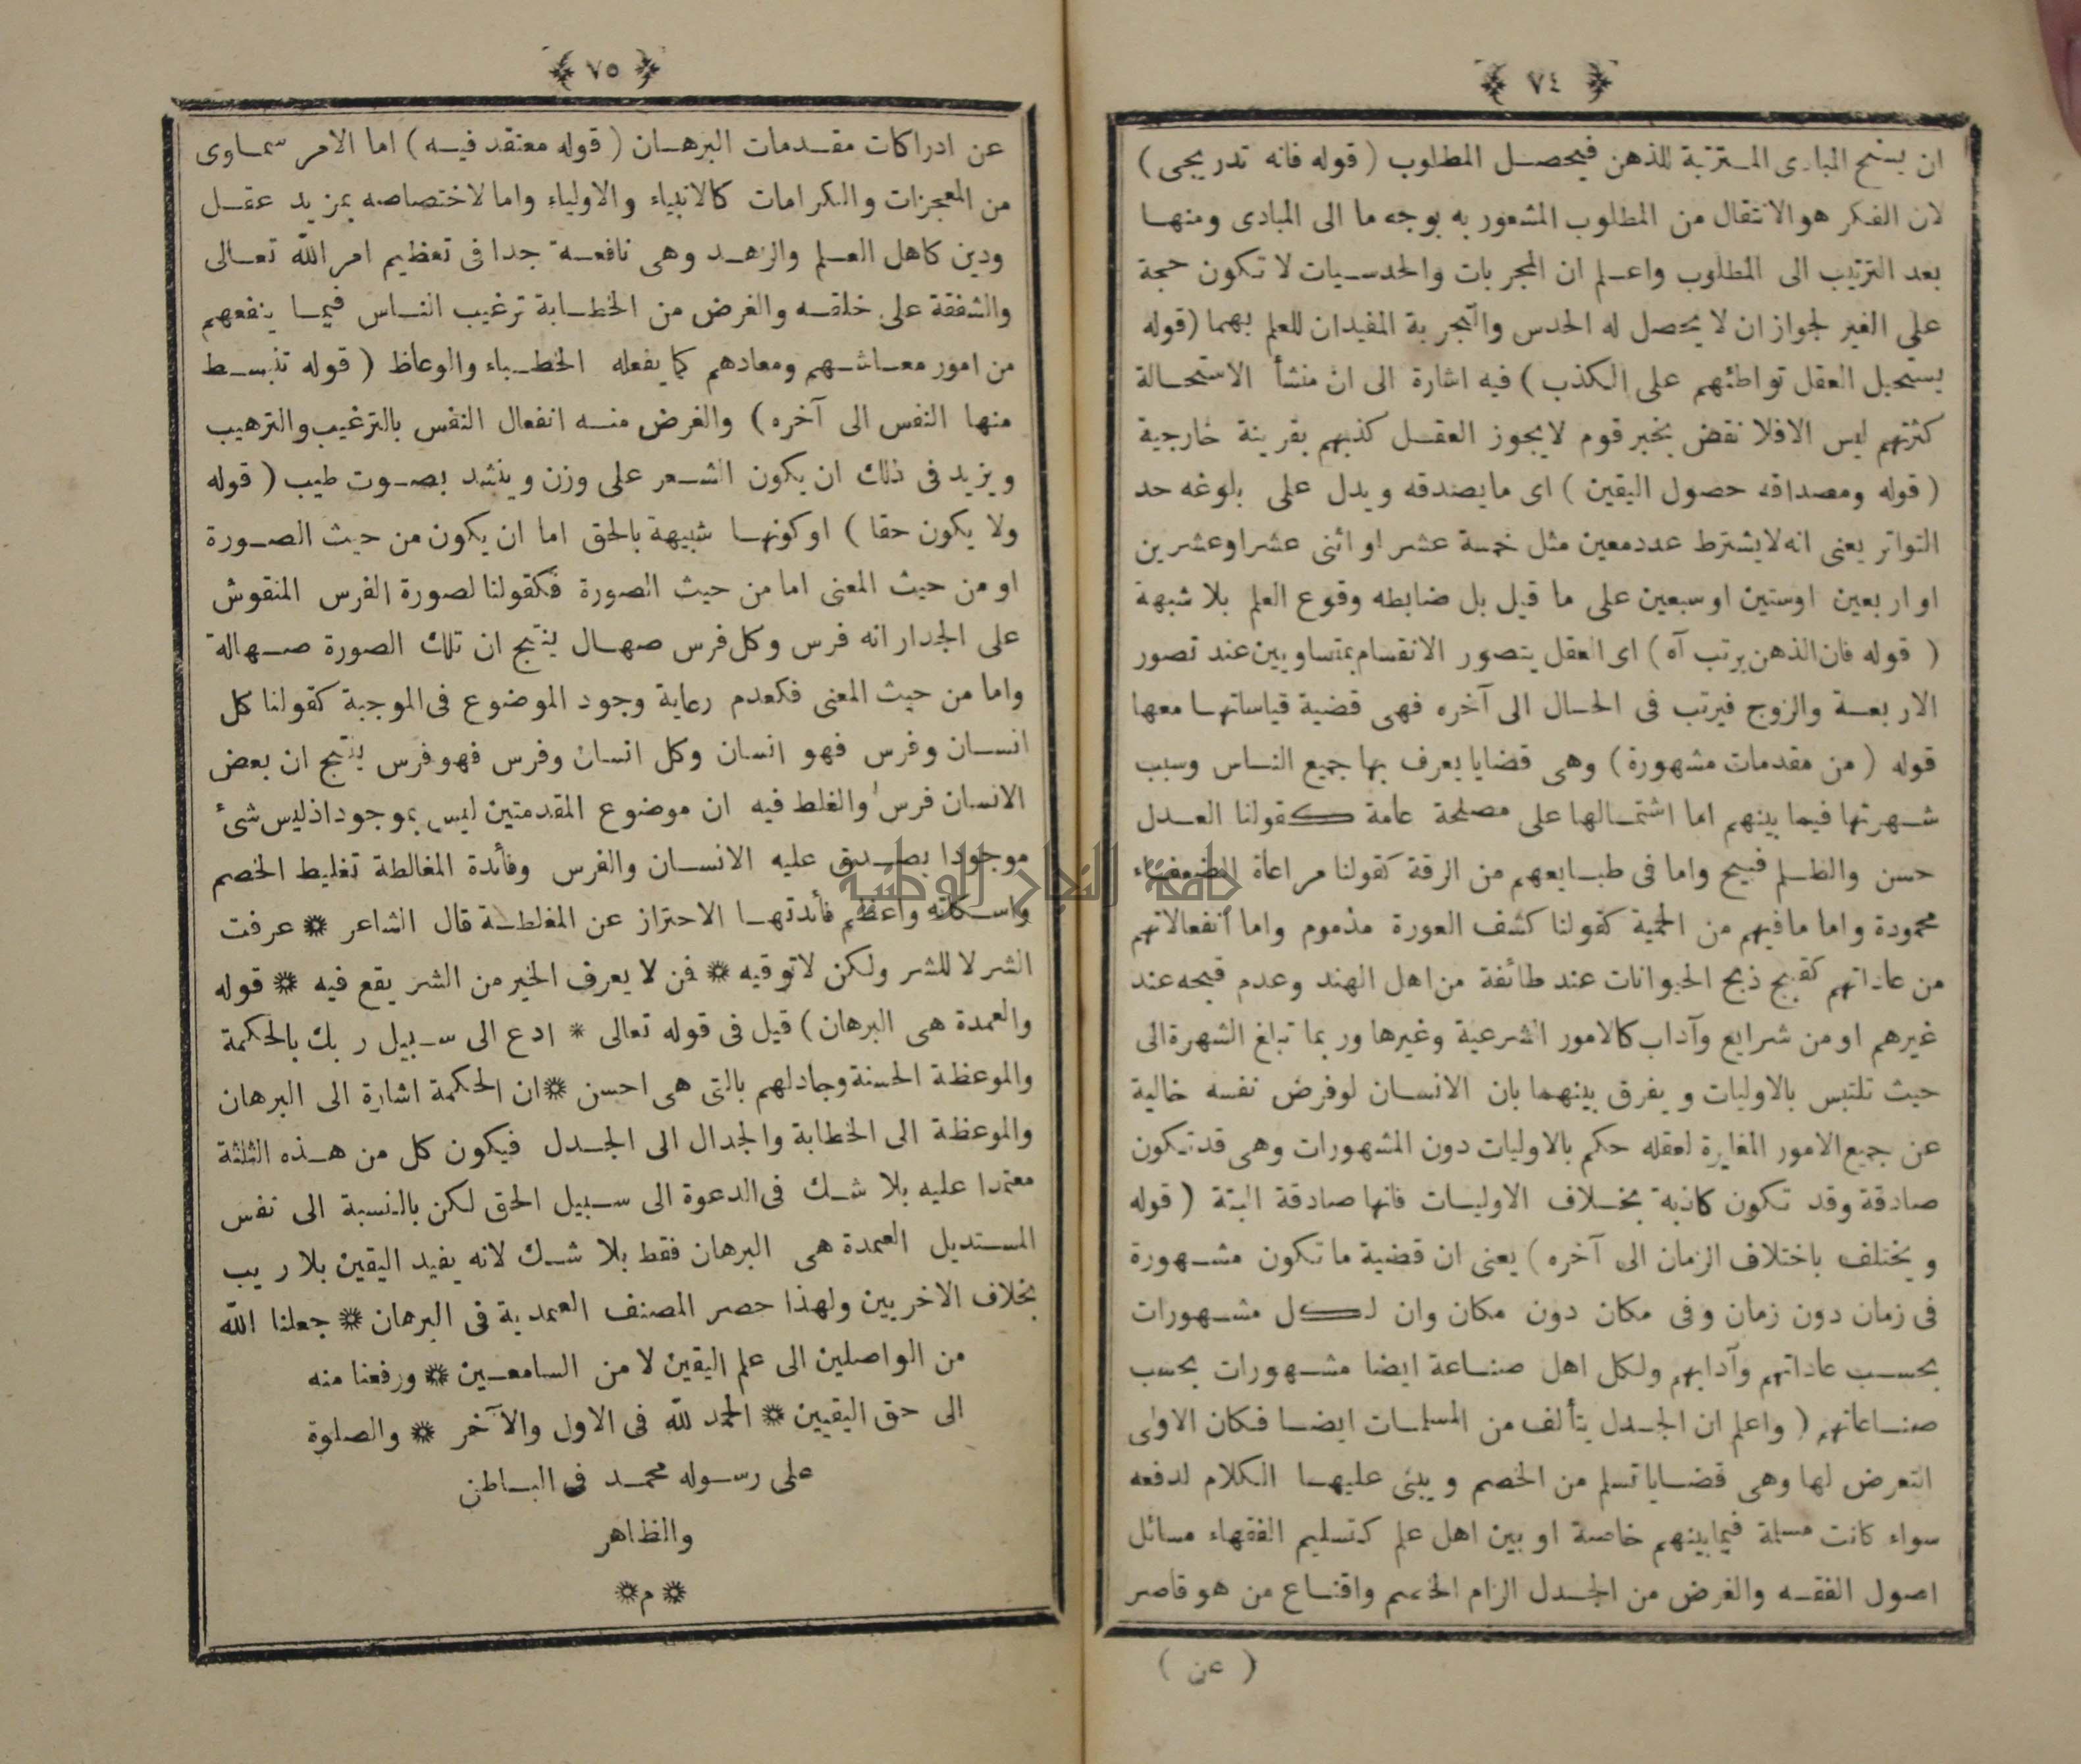 ﴿ ٧٤ ﴾
ان يسنح المبادى المترتبة للذهن فيحصل المطلوب ( قوله فانه تدريجى )
لان الفكر هو الانتقال من المطلوب المشعور به بوجه ما الى المبادى ومنها
بعد الترتيب الى المطلوب واعلم ان المجربات والحدسيات لا تكون حجة
على الغير لجواز ان لا يحصل له الحدس والتجربة المفيدان للعلم بهما ( قوله
يستحيل العقل تواطئهم على الكذب ) فيه اشارة الى ان منشأ الاستحالة
كثرتهم ليس الا فلا نقض بخبر قوم لا يجوز العقل كذبهم بقرينة خارجية
( قوله ومصداقه حصول اليقين ) اى ما يصدقه ويدل على بلوغه حد
التواتر يعنى انه لا يشترط عدد معين مثل خمسة عشر او اثنى عشر او عشرين
او اربعين او ستين او سبعين على ما قيل بل ضابطه وقوع العلم بلا شبهة
( قوله فان الذهن يرتب آه ) اى العقل يتصور الانقسام بمتساويين عند تصور
الاربعة والزوج فيرتب فى الحال الى آخره فهى قضية قياساتها معها
قوله ( من مقدمات مشهورة ) وهى قضايا يعرف بها جميع الناس وسبب
شهرتها فيما بينهم اما اشتمالها على مصلحة عامة كقولنا العدل
حسن والظلم قبيح واما فى طبايعهم من الرقة كقولنا مراعاة الضعفاء
محمودة واما مافيهم من الحمية كقولنا كشف العورة مذموم واما انفعالاتهم
من عاداتهم كقبح ذبح الحيوانات عند طائفة من اهل الهند وعدم قبحه عند
غيرهم او من شرايع وآداب كالامور الشرعية وغيرها وربما تبلغ الشهرة الى
حيث تلتبس بالاوليات ويفرق بينهما بان الانسان لو فرض نفسه خالية
عن جميع الامور المغايرة لعقله حكم بالاوليات دون المشهورات وهى قد تكون
صادقة وقد تكون كاذبة بخلاف الاوليات فانها صادقة البتة ( قوله
ويختلف باختلاف الزمان الى آخره ) يعنى ان قضية ما تكون مشهورة
فى زمان دون زمان وفى مكان دون مكان وان لكل مشهورات
بحسب عاداتهم وآدابهم ولكل اهل صناعة ايضا مشهورات بحسب
صناعاتهم ( واعلم ان الجدل يتألف من المسلمات ايضا فكان الاولى
التعرض لها وهى قضايا تسلم من الخصم ويبنى عليها الكلام لدفعه
سواء كانت مسلمة فيما بينهم خاصة او بين اهل علم كتسليم الفقهاء مسائل
اصول الفقه والغرض من الجدل الزام الخصم واقناع من هو قاصر
( عن )
﴿ ٧٥ ﴾
عن ادراكات مقدمات البرهان ( قوله معتقد فيه ) اما الامر سماوى
من المعجزات والكرامات كالانبياء والاولياء واما لاختصاصه بمزيد عقل
ودين كاهل العلم والزهد وهى نافعة جدا فى تعظيم امر الله تعالى
والشفقة على خلقه والغرض من الخطابة ترغيب الناس فيما ينفعهم
من امور معاشهم ومعادهم كما يفعله الخطباء والوعاظ ( قوله تنبسط
منها النفس الى آخره ) والغرض منه انفعال النفس بالترغيب والترهيب
ويزيد فى ذلك ان يكون الشعر على وزن وينشد بصوت طيب ( قوله
ولا يكون حقا ) او كونها شبيهة بالحق اما ان يكون من حيث الصورة
او من حيث المعنى اما من حيث الصورة فكقولنا لصورة الفرس المنقوش
على الجدار انه فرس وكل فرس صهال ينتج ان تلك الصورة صهالة
واما من حيث المعنى فكعدم رعاية وجود الموضوع فى الموجبة كقولنا كل
انسان وفرس فهو انسان وكل انسان وفرس فهو فرس ينتج ان بعض
الانسان فرس والغلط فيه ان موضوع المقدمتين ليس بموجود اذ ليس شئ
موجودا يصدق عليه الانسان والفرس وفائدة المغالطة تغليط الخصم
واسكاته واعظم فائدتها الاحتراز عن المغلطة قال الشاعر * عرفت
الشر لا للشر ولكن لا توقيه * فمن لا يعرف الخير من الشر يقع فيه * قوله
والعمدة هى البرهان ) قيل فى قوله تعالى * ادع الى سبيل ربك بالحكمة
والموعظة الحسنة وجادلهم بالتى هى احسن * ان الحكمة اشارة الى البرهان
والموعظة الى الخطابة والجدال الى الجدل فيكون كل من هذه الثلثة
معتمدا عليه بلا شك فى الدعوة الى سبيل الحق لكن بالنسبة الى نفس
المستديل العمدة هى البرهان فقط بلا شك لانه يفيد اليقين بلا ريب
بخلاف الاخريين ولهذا حصر المصنف العمدية فى البرهان * جعلنا الله
من الواصلين الى علم اليقين لا من السامعين * ورفعنا منه
الى حق اليقين * الحمد لله فى الاول والآخر * والصلوة
على رسوله محمد فى الباطن
والظاهر
* م *
جامعة النجاح الوطنية